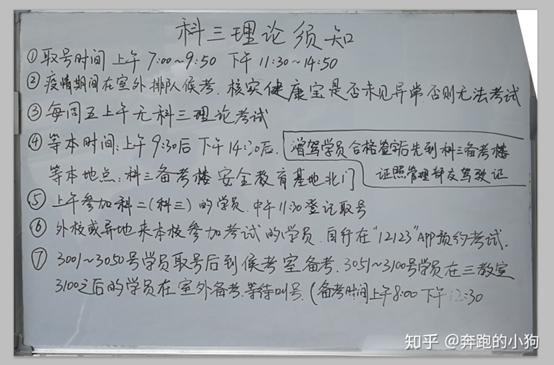 科三理论须知
①取号时间上午7:00~9:50 下午11:30~14:50
②疫情期间在室外排队候考.核实健康宝是否未见异常否则无法考试
③每周五上午无科三理论考试
④等本时间:上午9:30后 下午14:30后.
增驾学员合格签字后先到科三备考楼
证照管理科交驾驶证
等本地点:科三备考楼安全教育基地北门
⑤上午参加科二(科三)的学员.中午11:30登记取号
⑥外校或异地来本校参加考试的学员.自行在"12123"App预约考试.
⑦3001~3050号学员取号后到候考室备考.3051~3100号学员在三教室
3100之后的学员在室外备考.等待叫号.(备考时间上午8:00 下午12:30
知乎 @奔跑的小狗